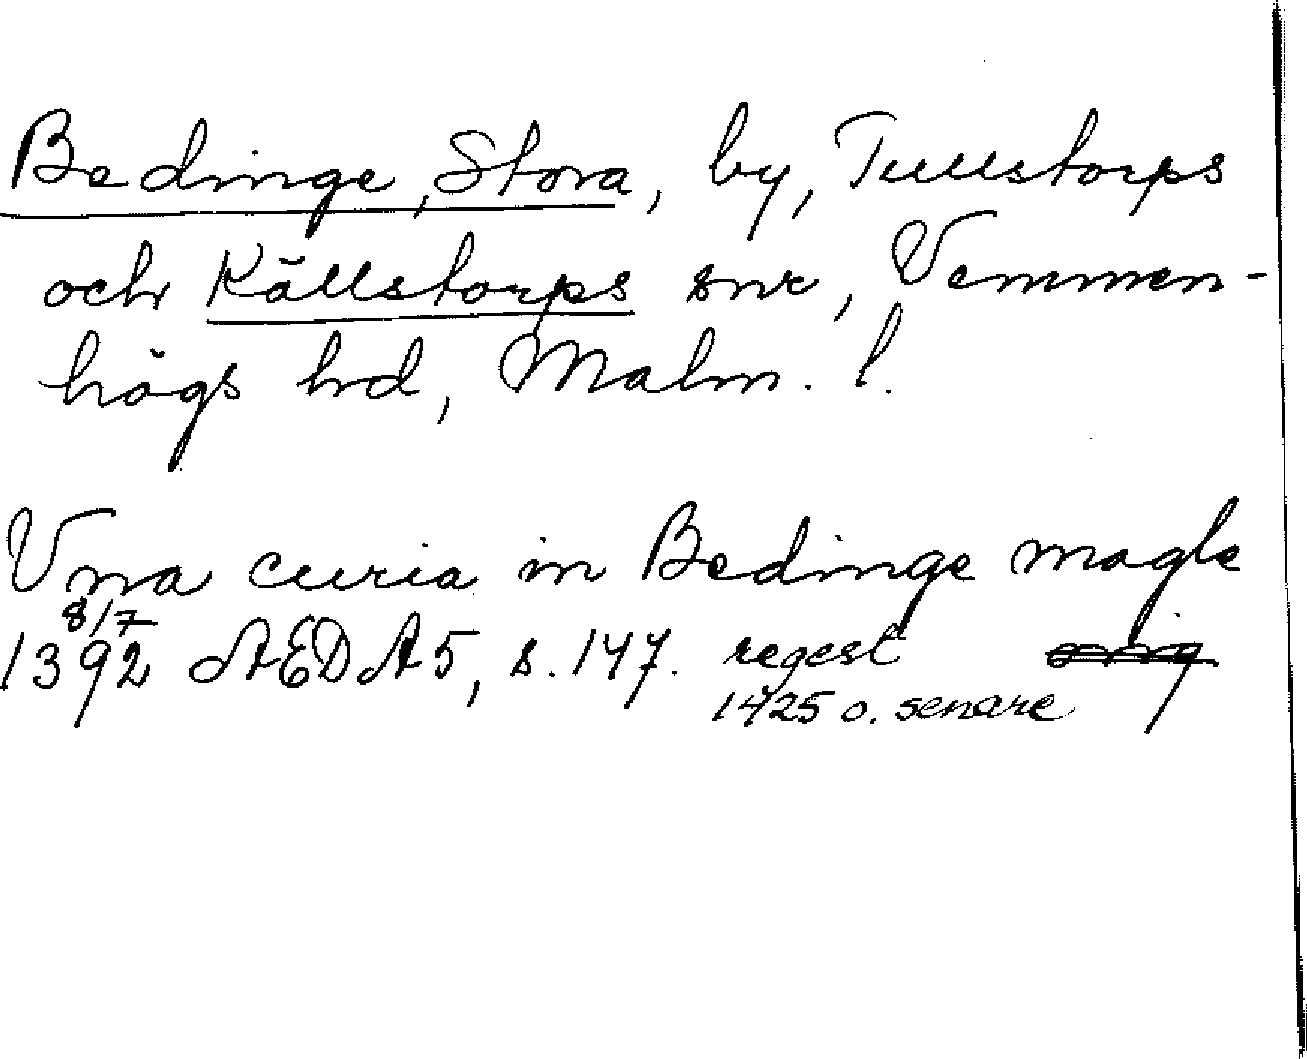 Bedinge, Stora, by, Tullstorps
och Källstorps snr, Vemmen-
högs hd, Malm. l.
Vna curia in Bedinge magle
8/7
1392 ÆDA5, s. 147. regest orig
1425 o. senare